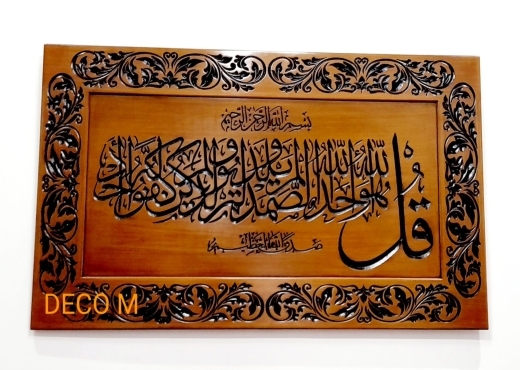 بسم الله الرحمن الرحيم
قل هو الله أحد الله الصمد لم يلد ولم يولد ولم يكن له كفوا أحد
صدق الله العظيم
DECO M